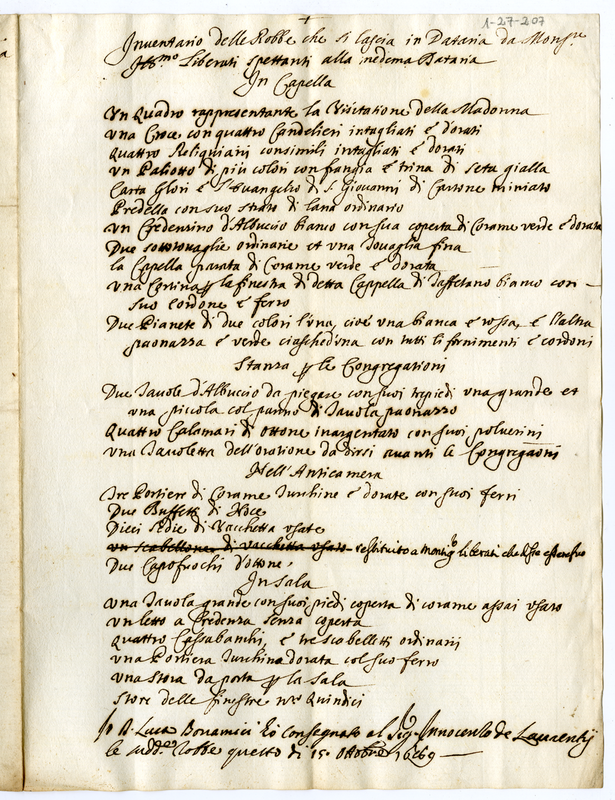 +
1-27-207
Inventario delle Robbe che si lascia in Dataria da Monsre
Illmo Liberati spettanti alla medema Dataria
In Capella
Un Quadro rappresentante la Visitatione della Madonna
una Croce con quattro Candelieri intagliati e dorati
Quattro Reliquiarij consimili intagliati e dorati
un Paliotto di più colori con frangia e trina di seta gialla
Carta Glori e l'Euangelio di S. Giovanni di Cartone miniato
Predella con suo strato di lana ordinario
un Credenzino d'Albuccio bianco con sua coperta di Corame verde e dorata
Due sottotouaglie ordinarie et una Touaglia fina
la Capella parata di Corame verde e dorata
una Cortina p la finestra di detta Cappella di Taffetano bianco con
suo cordone e ferro
Due Pianete di due colori l'una, cioè una bianca e rossa, e l'altra
paonazza e verde ciascheduna con tutti li fornimenti e cordoni
Stanza p le Congregationi
Due Tauole d'Albuccio da piegare con suoi trepiedi una grande et
una piccola col panno di Tauola paonazzo
Quattro Calamari di ottone inargentato con suoi poluerini
una Tauoletta dell'oratione da dirsi auanti le Congregationi
Nell'Anticamera
Tre Portiere di Corame Turchine e dorate con suoi ferri
Due Buffetti di Noce
Dieci Sedie di Vacchetta usate
un scabellone di vacchetta usato restituito a Monsig Liberati che disse esser suo
Due Capofuochi d'ottone
In Sala
una Tauola grande con suoi piedi coperta di corame assai usato
un letto a Credenza senza coperta
Quattro Cassabanchi, e tre scabelletti ordinarij
una Portiera Turchina dorata col suo ferro
una Stora da porta p la Sala
Store delle finestre nro Quindici
Io D. Luca Bonamici hò consegnato al Sig Innocentio de Laurentij
le sudde robbe questo dì 15 Ottobre 1689